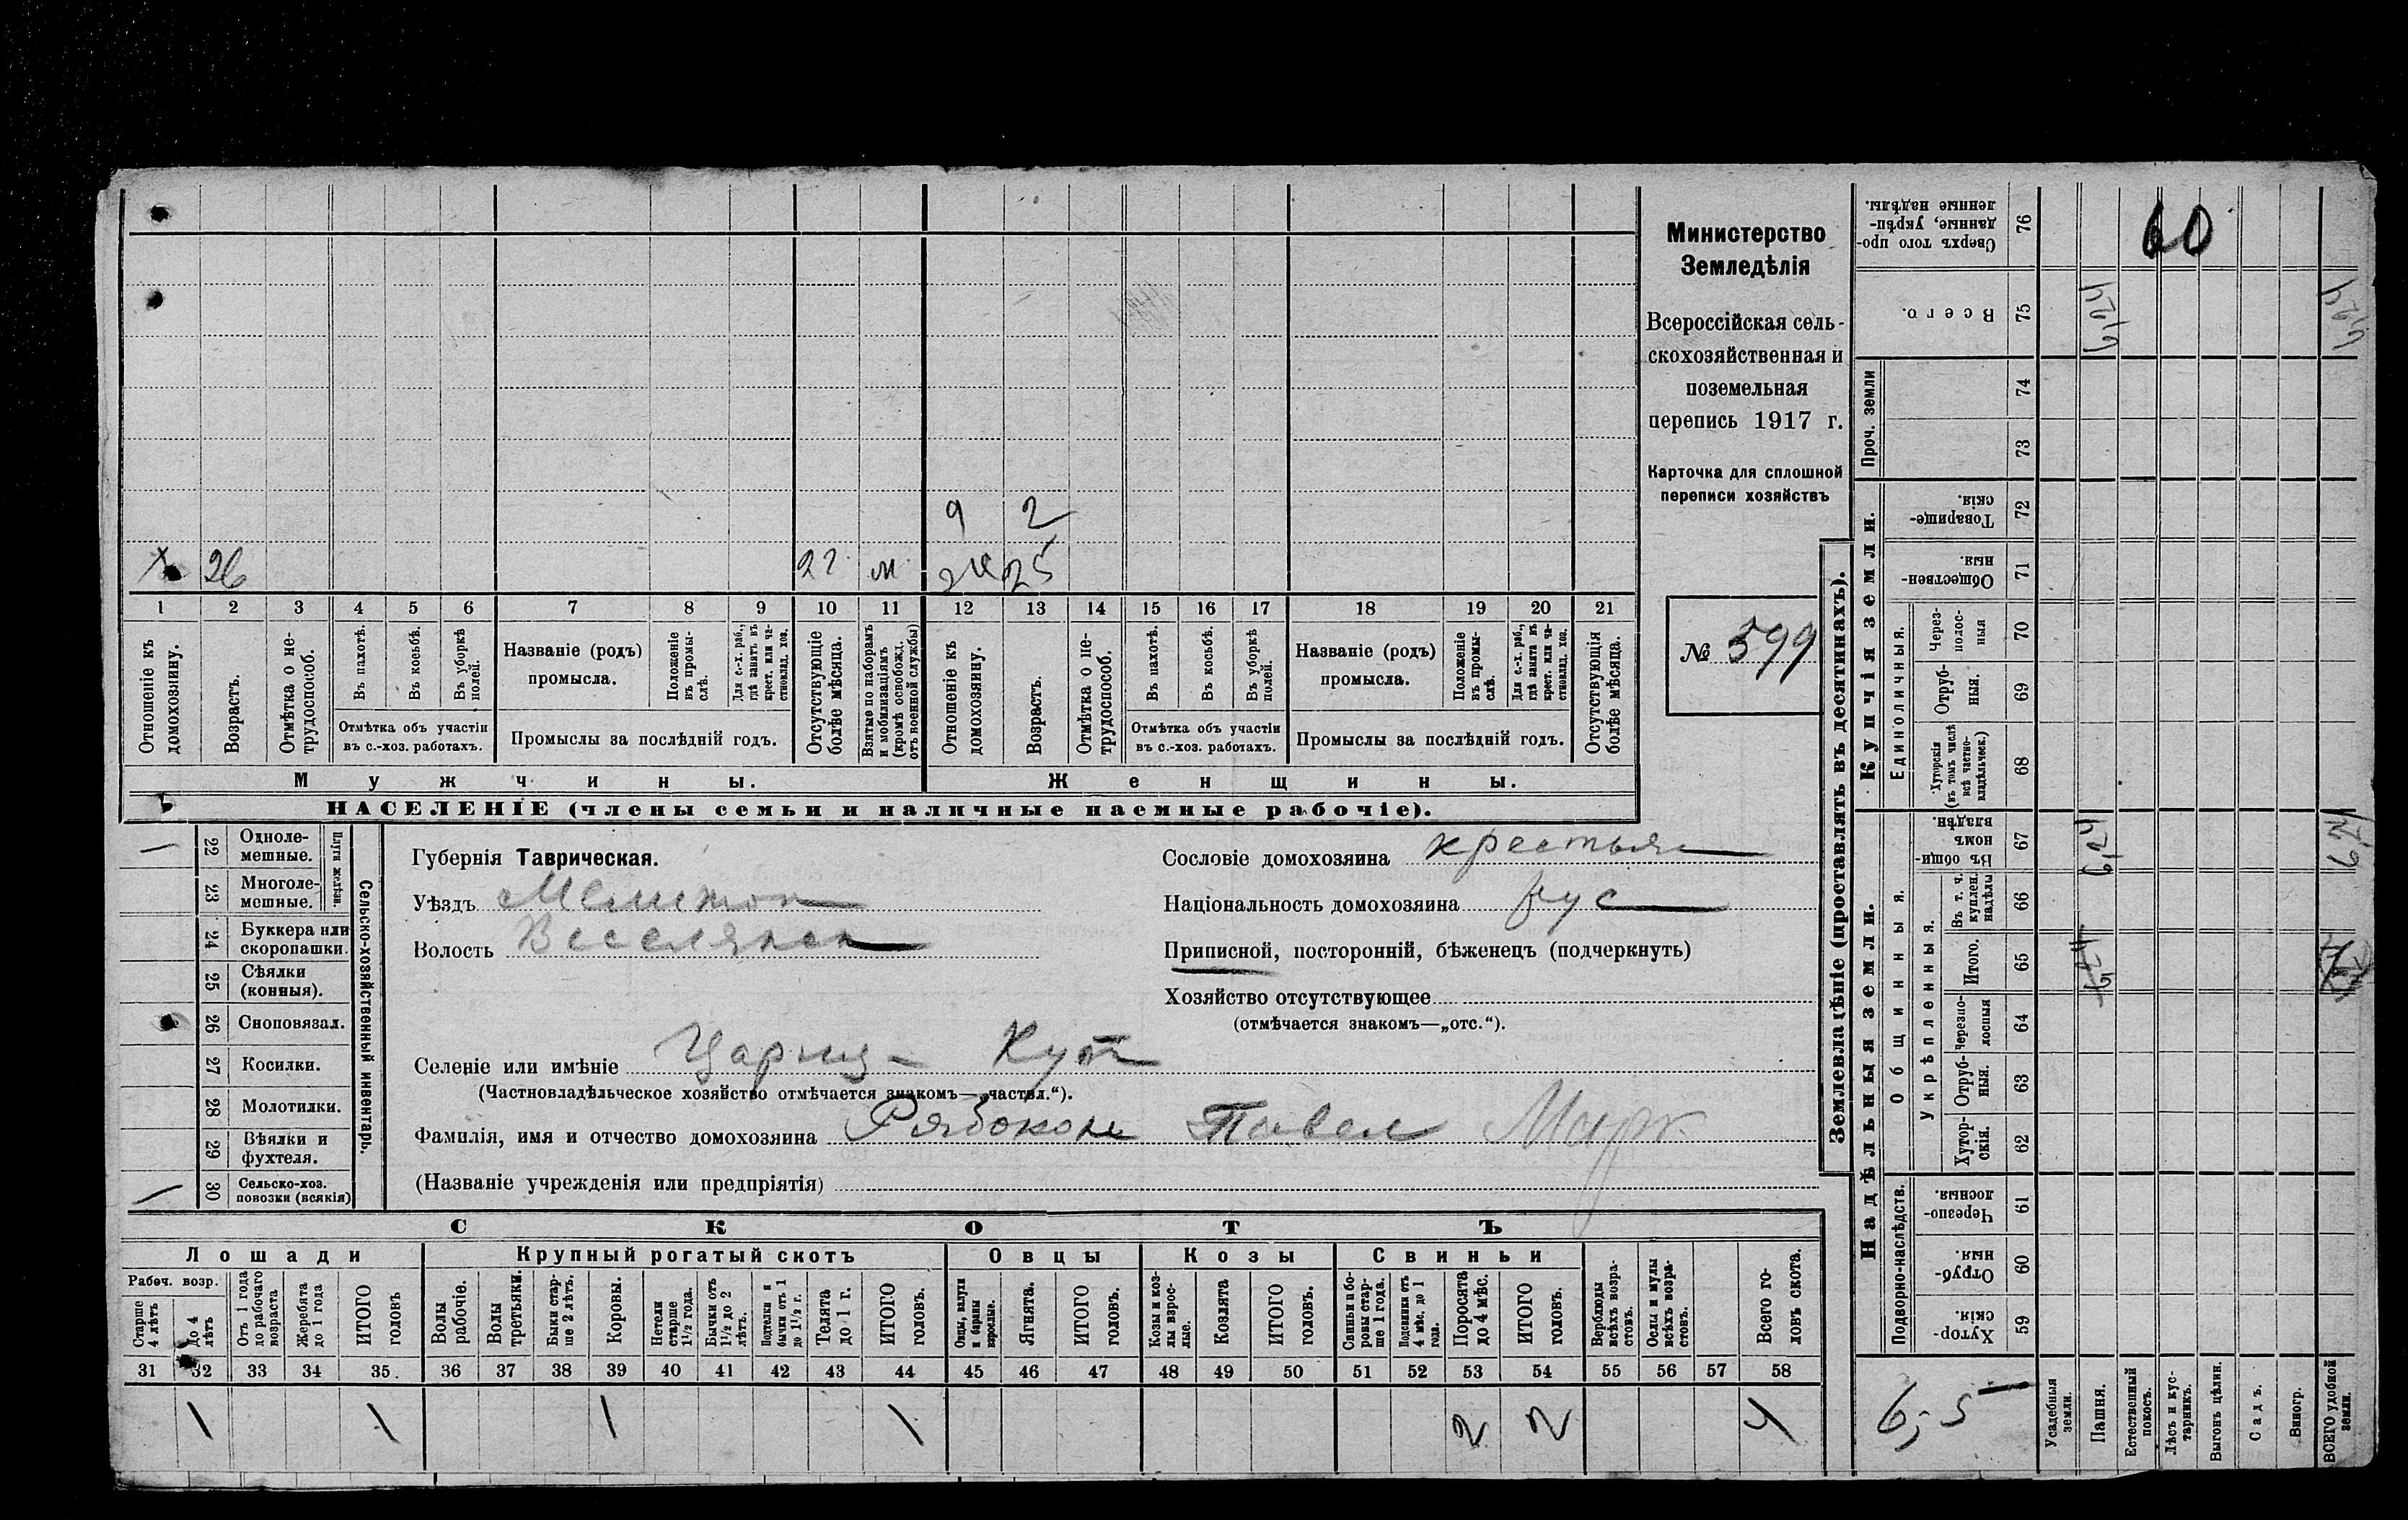 9 2
х 26 22 м ж 25
1 2 3 4 5 6 7 8 9 10 11 12 13 14 15 16 17 18 19 20 21
Отношеніе къ домохозяину.
Возрастъ.
Отмѣтка о не-трудоспособ.
Въ пахотѣ.
Въ косьбѣ.
Въ уборкѣ полей.
Отмѣтка объ участіи
въ с.-хоз. работахъ.
Названіе (родъ)
промысла.
Положеніе въ промы-слѣ.
Для с.-х. раб., гдѣ занятъ въ крест. или ча-стновлад. хоз.
Промыслы за послѣдній годъ.
Отсутствующіе болѣе мѣсяца.
Взятые по наборамъ и мобилизаціямъ (кромѣ освобожд. отъ военной службы)
Отношеніе къ домохозяину.
Возрастъ.
Отмѣтка о не-трудоспособ.
Въ пахотѣ.
Въ косьбѣ.
Въ уборкѣ полей.
Отмѣтка объ участіи
въ с.-хоз. работахъ.
Названіе (родъ)
промысла.
Положеніе въ промы-слѣ.
Для с.-х. раб., гдѣ занята въ крест. или ча-стновлад. хоз.
Промыслы за послѣдній годъ.
Отсутствующія болѣе мѣсяца.
Мужчины. Женщины.
НАСЕЛЕНІЕ (члены семьи и наличные наемные рабочіе).
Министерство
Земледѣлія
Всероссійская сель-
скохозяйственная и
поземельная
перепись 1917 г.
Карточка для сплошной
переписи хозяйствъ
№ 599
22 Одноле-мешные.
23 Многоле-мешные.
Плуги желѣзн.
24 Буккера или скоропашки.
25 Сѣялки (конныя).
26 Сноповязал.
27 Косилки.
28 Молотилки.
29 Вѣялки и фухтеля.
30 Сельско-хоз. повозки (всякія)
Сельско-хозяйственный инвентарь.
Губернія Таврическая.
Уѣздъ Мелитоп
Волость Веселянск
Селеніе или имѣніе Цариц- Кут
(Частновладѣльческое хозяйство отмѣчается знакомъ—„частвл.“).
Фамилія, имя и отчество домохозяина Рябоконь Павел Марк
(Названіе учрежденія или предпріятія)
Сословіе домохозяина крестьян
Національность домохозяина рус
Приписной, посторонній, бѣженецъ (подчеркнуть)
Хозяйство отсутствующее
(отмѣчается знакомъ—„отс.“).
СКОТЪ
Лошади Крупный рогатый скотъ Овцы Козы Свиньи
Рабоч. возр.
Старше 4 лѣтъ
До 4 лѣтъ
Отъ 1 года до рабочаго возраста
Жеребята до 1 года
ИТОГО головъ
Волы рабочіе.
Волы третьяки.
Быки стар-ше 2 лѣтъ.
Коровы.
Нетели старше 1½ года.
Бычки отъ 1½ до 2 лѣтъ.
Подтелки и бычки отъ 1 до 1½ г.
Телята до 1 г.
ИТОГО головъ.
Овцы, валухи и бараны взрослые.
Ягнята.
ИТОГО головъ.
Козы и коз-лы взрос-лые.
Козлята
ИТОГО головъ.
Свиньи и бо-ровы стар-ше 1 года.
Подсвинки отъ 4 мѣс. до 1 года.
Поросята до 4 мѣс.
ИТОГО головъ.
Верблюды всѣхъ возра-стовъ.
Ослы и мулы всѣхъ возра-стовъ.
Всего го-ловъ скота.
31 32 33 34 35. 36 37 38 39 40 41 42 43 44 45 46 47 48 49 50 51 52 53 54 55 56 57 58
1 1 1 1 2 2 4
Землевладѣніе (проставлять въ десятинахъ).
Надѣльныя земли. Купчія земли. Проч. земли
Подворно-наслѣдств.
Общинныя.
Укрѣпленныя.
Единоличныя.
Хутор-скія. 59
Отруб-ныя. 60
Черезпо-лосныя. 61
Хутор-скія. 62
Отруб-ныя. 63
Черезпо-лосныя 64
Итого. 65
Въ т. ч. куплен. надѣлы 66
Въ общи-номъ владѣн. 67
Хуторскія (въ томъ числѣ всѣ частно-владѣльческ.) 68
Отруб-ныя. 69
Через-полос-ныя 70
Обществен-ныя 71
Товарище-скія. 72
73
74
Всего. 75
Сверхъ того про-данные, укрѣп-ленные надѣлы. 76
6,5
Усадебныя земли.
Пашня.
6,24 6,24
Естественный покосъ.
Лѣсъ и кус-тарникъ.
Выгонъ цѣлин.
Садъ.
Виногр.
ВСЕГО удобной земли.
6,24 6,24
60